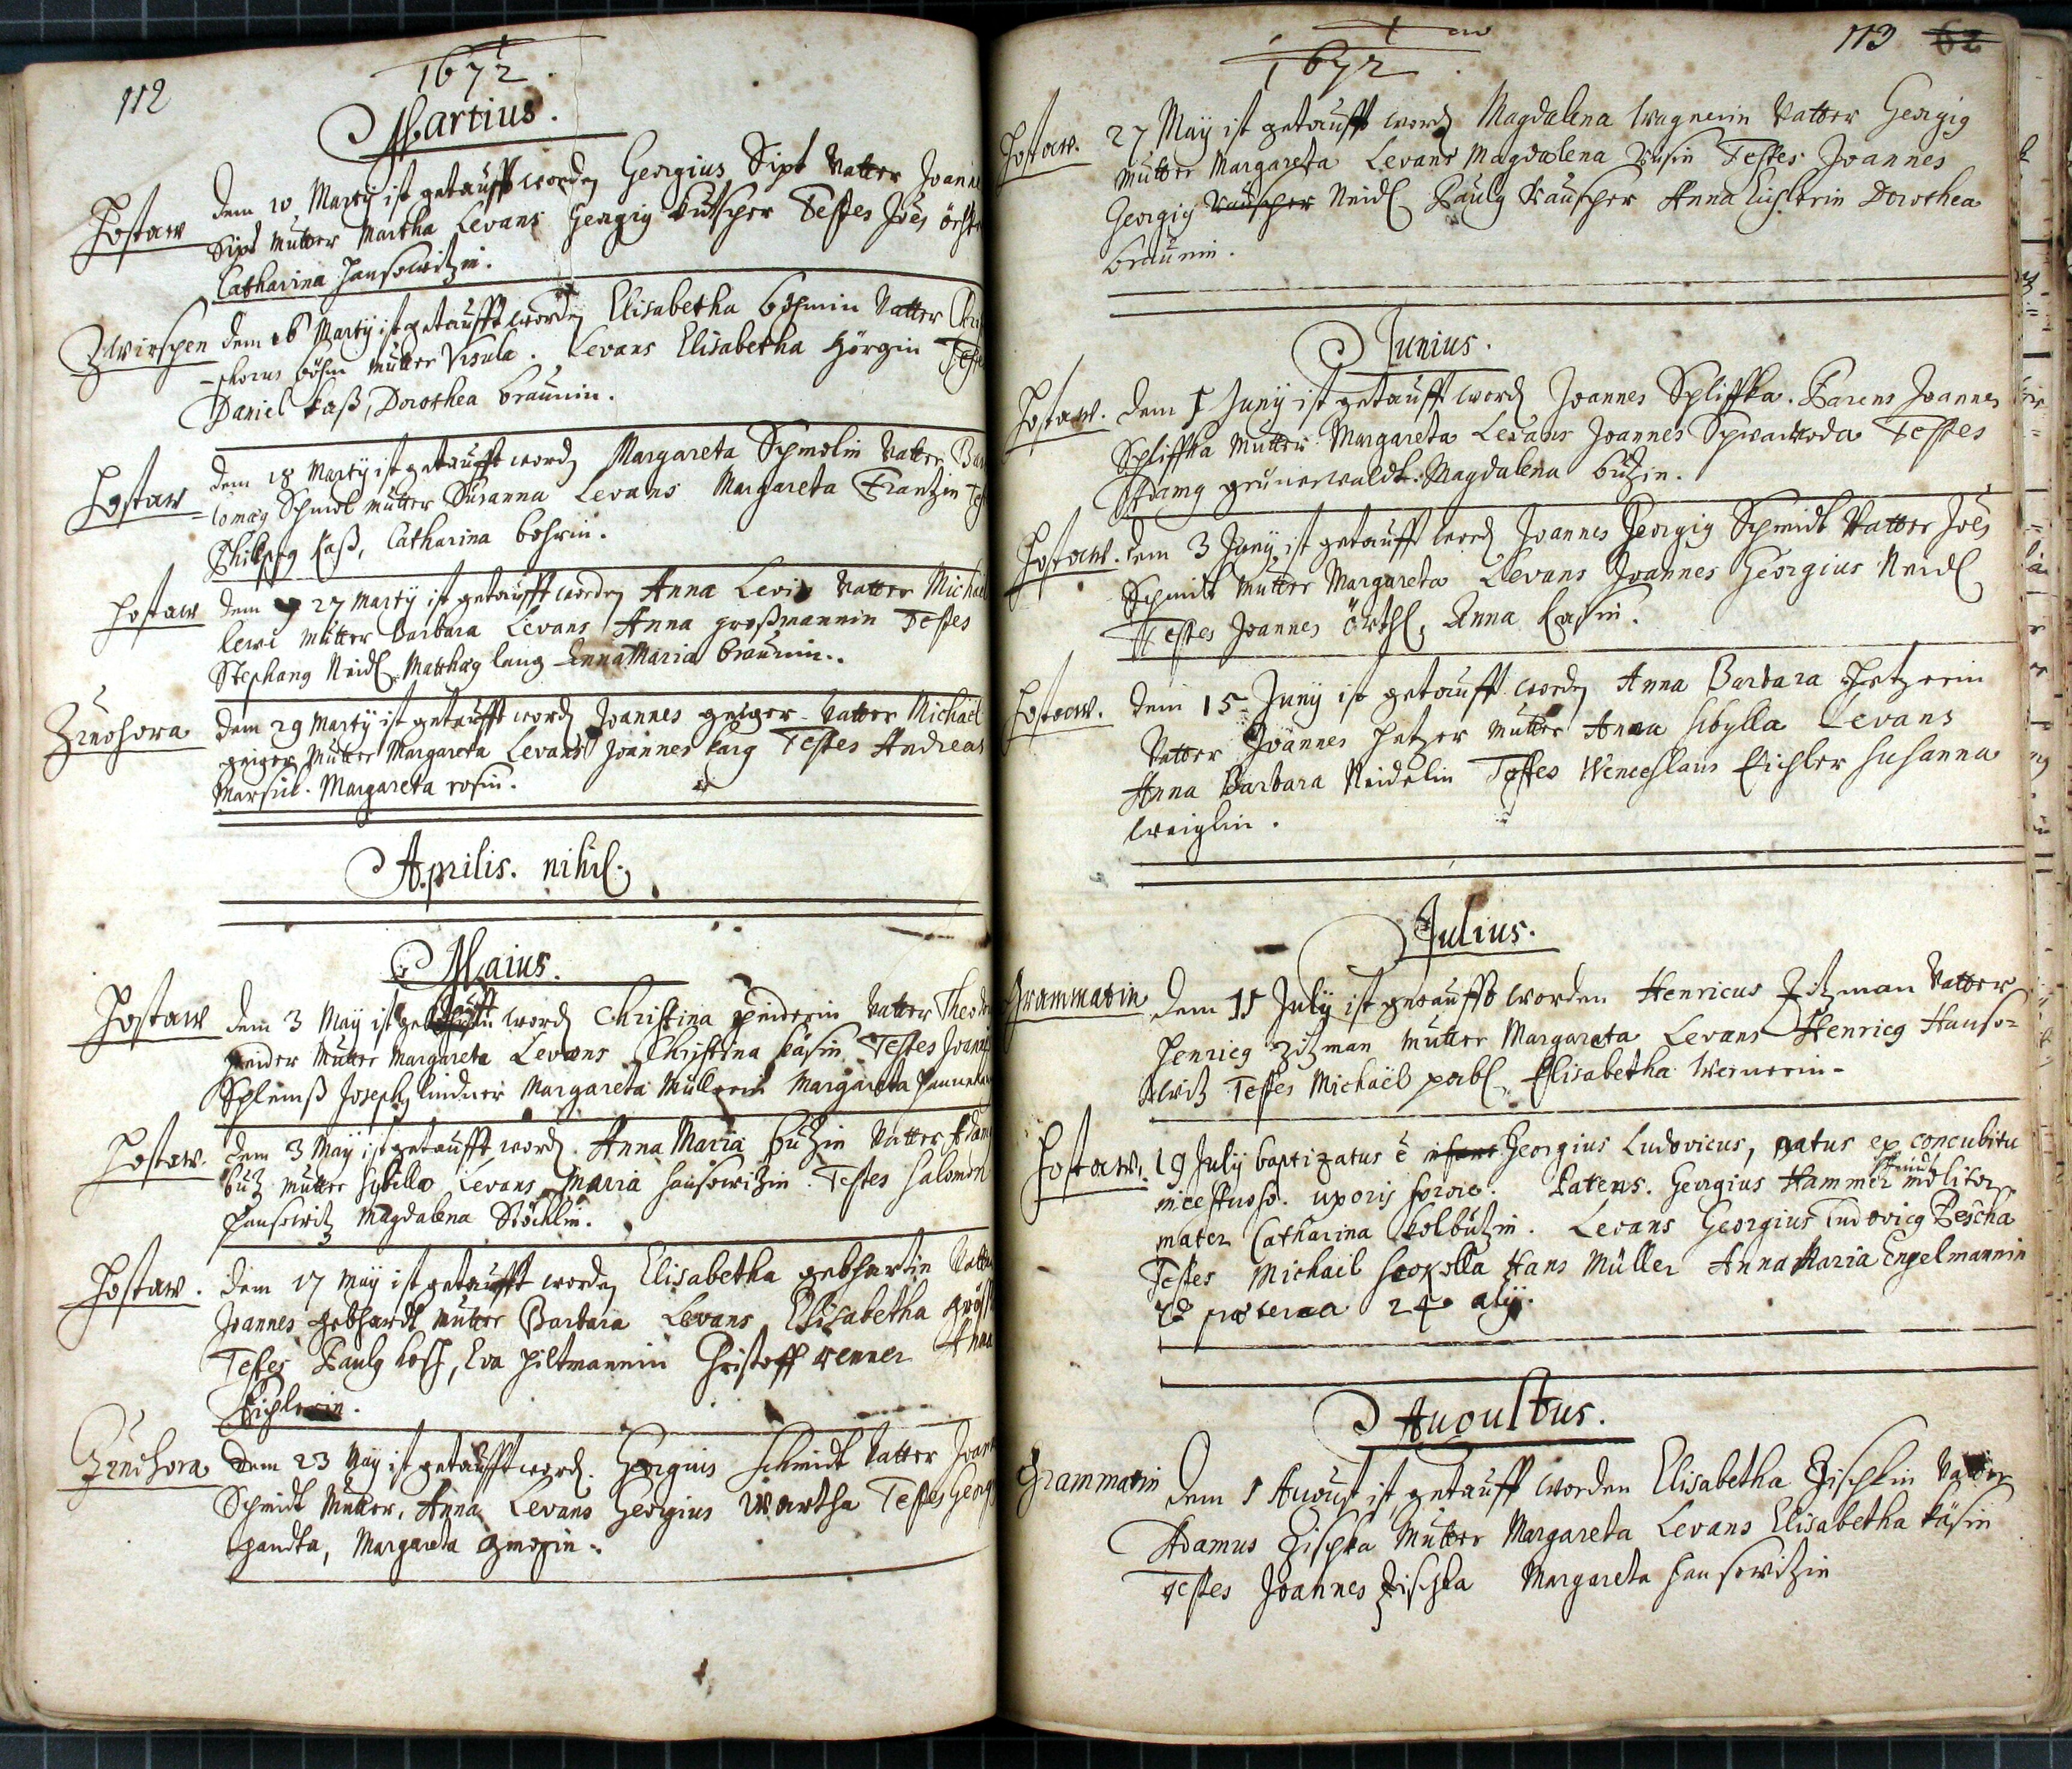 112
1672.
Martius.
Hostaw dem 10 Marty ist getaufft worden Georgius Sipt Vatter Joanne
Sipt Mutter Martha Levans Georgig Kutscher Testes Joës
Catharina Hansowitzin.
Zwirschen dem 16 Martÿ ist getaufft worden Elisabetha Böhmin Vatter
-phorus Böhm Mutter Ursula. Levans Elisabetha Görgin Teste
Daniel Kaß, Dorothea Braunin.
Hostaw dem 18 Martÿ ist getaufft word Margareta Schmolin Vatter Bar
-lomæg Schmol Mutter Susanna Levans Margareta Frantzin Tes
Philippg Kaß, Catharina
Hostaw dem 27 Martÿ ist getaufft worden Anna Levin Vatter Michael
Lewi Mutter Barbara Levans Anna großmannin Testes
Stephang Neidl Matthæg lang Anna Maria Braunin.
Zinohora dem 29 Martÿ ist getaufft word Joannes geiger Vatter Michaël
geiger Mutter Margareta Levans Joannes Karg Testes Andreas
Marsick. Margareta rosin.
Aprilis. nihil.
Maius.
Hostaw dem 3 Maÿ ist getaufft word Christina Heiderin Vatter Theodor
Heider Mutter Margareta Levans Christina Käsin Testes Joannes
Joseph Lindner Margareta Müllerin Margareta
Hostaw. dem 3 Maÿ ist getaufft word. Anna Maria Butzin Vatter Adam
Butz Mutter Sybilla Levans Maria Hansowitzin. Testes Salomon
Hansowitz Magdalena Stöcklin.
Hostaw. dem 17 Maÿ ist getaufft worden Elisabetha gebhartin Vatter
Joannes gebhardt Mutter Barbara Levans Elisabetha
Testes Paulg Eva Hiltmannin Christoff Renner Anna
Eichlerin.
Zinohora dem 23 Maÿ ist getaufft word. Georgius Schmidt Vatter Joanne
Schmidt Mutter, Anna Levans Georgius Wartha Testes Georg
Handta, Margareta
1672.
113 62
Hostaw. 27 Maÿ ist getaufft word Magdalena Wagnerin Vatter Georgig
Mutter Margareta Levans Magdalena Testes Joannes
Georgig Rauscher Neidl Paulg Rauscher Anna Eichlerin Dorothea
Braunin.
Junius.
Hostaw. dem 1 Junÿ ist getaufft word Joannes Schliffka. Parens Joannes
Schliffka Mutter Margareta Levans Joannes Testes
Adamg grünerwaldt. Magdalena Butzin.
Hostaw. dem 3 Junÿ ist getaufft word Joannes Georgig Schmidt Vatter Joës
Schmidt Mutter Margareta Levans Joannes Georgius Neidl
Testes Joannes Örthl, Anna Kasin.
Hostaw. dem 15 Junÿ ist getaufft worden Anna Barbara Hetzerin
Vatter Joannes Hetzer Mutter Anna Sibylla Levans
Anna Barbara Neidelin Testes Wenceslaus Eichler Susanna
Weiglin.
Julius.
Grammatin dem 11 Julÿ ist getaufft worden Henricus Zitzman Vatter
Henricg Zitzman Mutter Margareta Levans Henricg Hanso=
witz Testes Michaël Elisabetha Wernerin.
Hostaw. 19 Julÿ baptizatus ē infans Georgius Ludovicus, natus ex concubitu
incestuoso. uxoris sorore. Patens. Georgius Hammerschmidt molitor
mater Catharina Kolbützin. Levans Georgius Ludovicg Pescha
Testes Michael Scokolla Hans Müller Anna Maria Engelmannin
et præterea 24 alÿ.
Augustus.
Grammatin dem 1 August ist getaufft worden Elisabetha Zischkin Vatter
Adamus Zischka Mutter Margareta Levans Elisabetha Käsin
Testes Joannes Zischka Margareta Hansowitzin